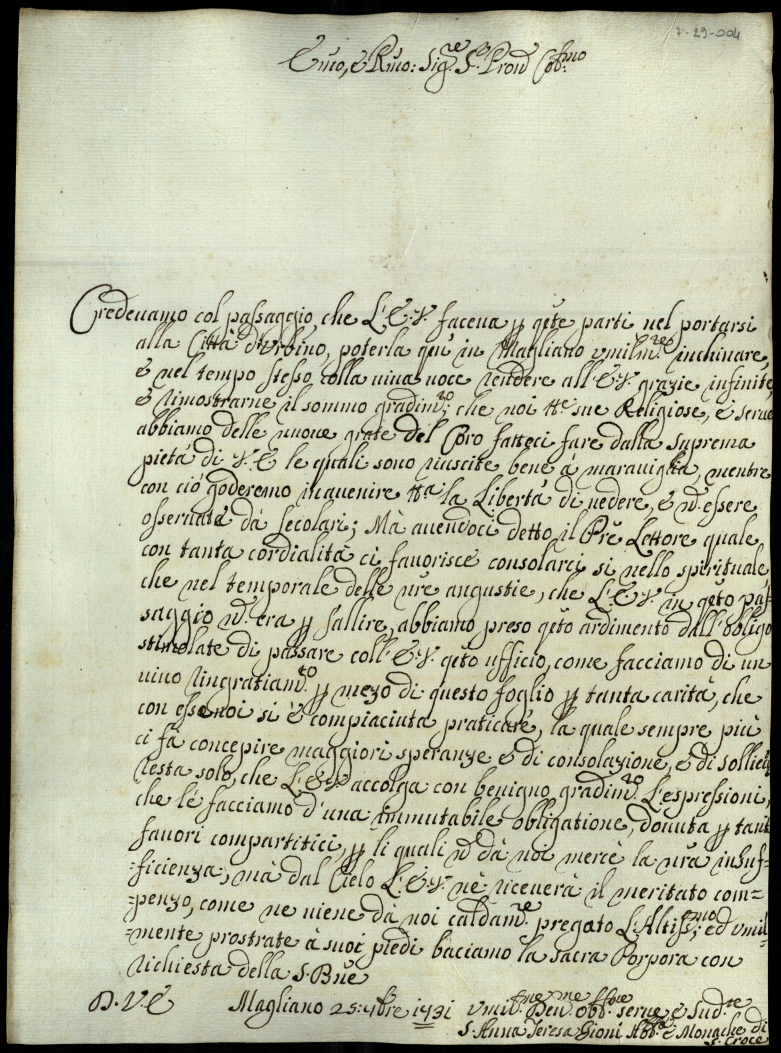 7-29-004
Emo, e Rmo: Sig.re S.r Pron Col.mo
Credeuamo col passaggio, che L'E.V. faceua p qṡte parti nel portarsi
alla Città d'Vrbino, poterla qui in Magliano vmilm.te inchinare,
e nel tempo stesso colla uiua uoce rendere all'E.V. grazie infinite,
e rimostrarne il sommo gradim.to, che noi tt.e sue Religiose, e serue
abbiamo delle nuoue grate del Coro fatteci fare dalla suprema
pietà di V.E. le quali sono riuscite bene à marauiglia, mentre
con ciò goderemo in auenire tt.a la Libertà di uedere, e nō essere
osseruate dà secolari; Mà auendoci detto il Prē Lettore quale
con tanta cordialità ci fauorisce consolarci si nello spirituale,
che nel temporale delle nrē angustie, che L'E.V. in qṡto pas-
saggio nō era p fallire, abbiamo preso qṡto ardimento dall'obligo
stimolate di passare coll'E.V. qṡto ufficio, come facciamo di un
uiuo ringratiam.to p mezo di questo foglio p tanta carità, che
con esso noi si è compiaciuta praticare, la quale sempre più
ci fà concepire maggiori speranze e di consolazione, e di sollieuo
resta solo, che L'E.V. accolga con benigno gradim.to L'espressioni,
che le facciamo d'una immutabile obligatione, douuta p tanti
fauori compartitici, p li quali nō dà noi mercè la nrā insuf=
=ficienza, mà dal Cielo L'E.V. nè riceuerà il meritato com=
=penzo, come ne uiene dà noi caldam.te pregato L'Altiss.mo; ed vmil=
=mente prostrate à suoi piedi baciamo la sacra Porpora con
richiesta della S. Bnē
D.V.E. Magliano 25: 7bre 1731 vmil.me Deu.me obb.me serue e Sud.te
S. Anna Teresa Gioni Abb.a e Monache di
S. Croce